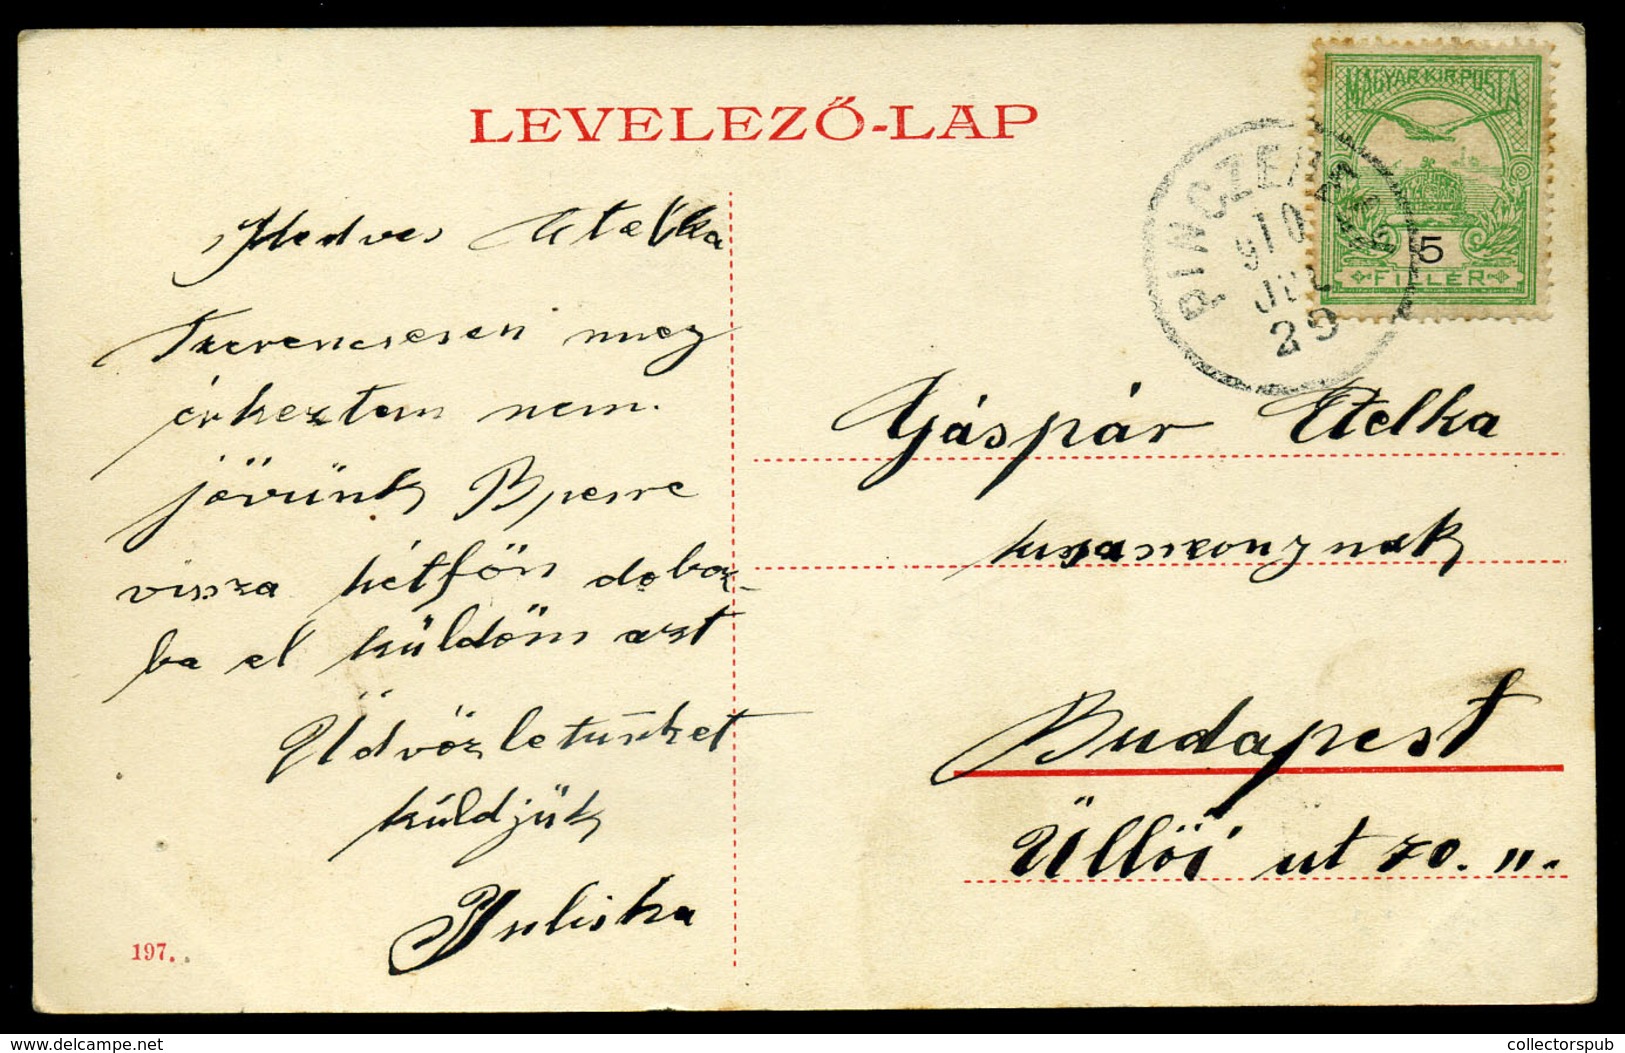 LEVELEZŐ-LAP
MAGYAR KIR. POSTA
5
FILLÉR
910
JUL
29
Medves Etelka
Szerencsesen meg
érkeztem nem.
jövünk Bpesre
vissza hétfőn doboz-
ba el küldöm azt
Üdvözletünket
küldjük
Juliska
197.
Gáspár Etelka
kisasszonynak
Budapest
Üllői ut 70. II.
197
collectorspub.com